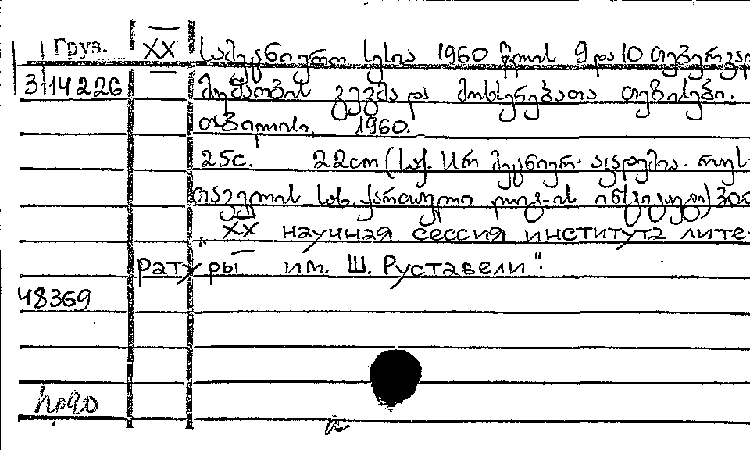 Груз. XX სამეცნიერო სესია 1960 წლის 9 და 10 თებერვალ
3/14226 მუშაობის გეგმა და მოხსენებათა თეზისები.
თბილისი, 1960.
25с. 22cm (საქ. სსრ მეცნიერ. აკადემია. რუს
თაველის სახ. ქართული ლიტ-ის ინსტიტუტი) 300
" XX научная сессия института лите-
ратуры им. Ш. Руставели".
48369